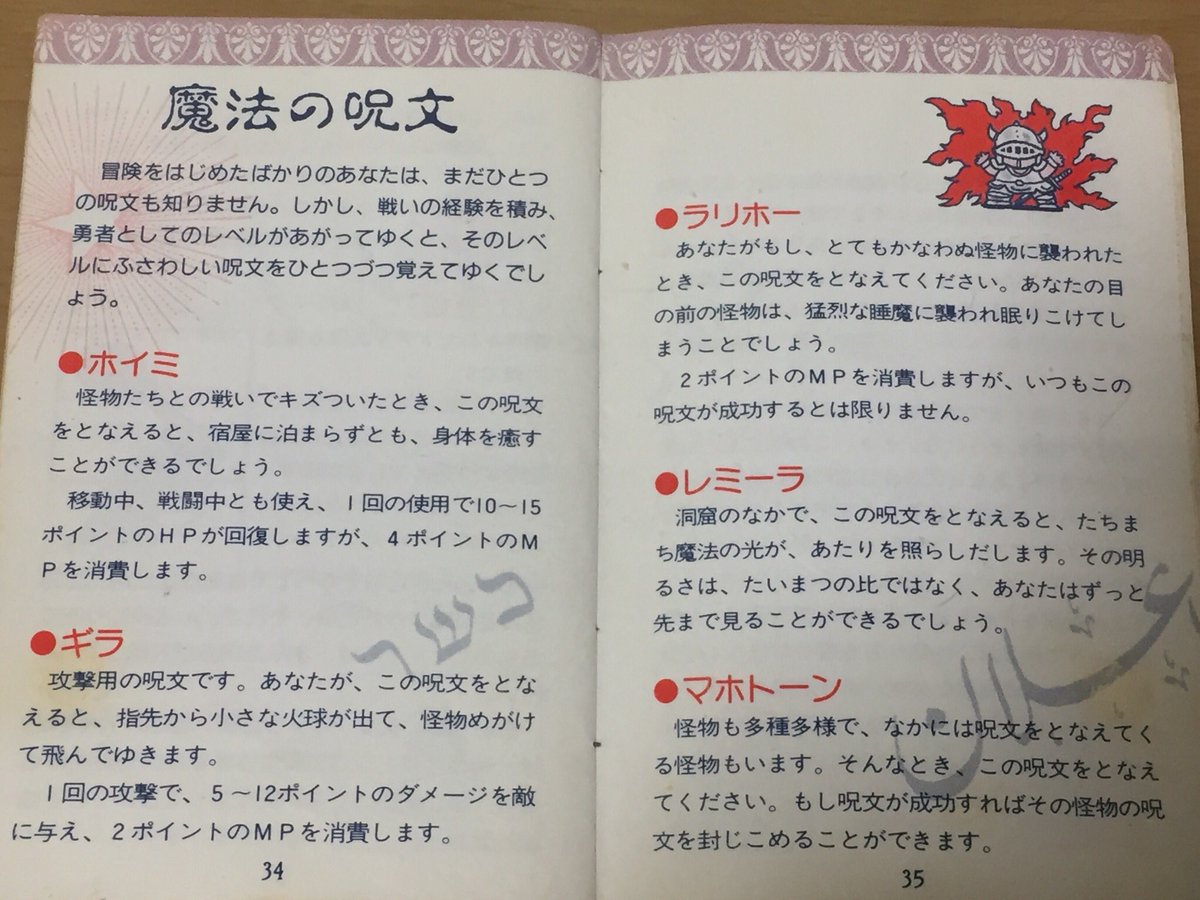 魔法の呪文
冒険をはじめたばかりのあなたは、まだひとつ
の呪文も知りません。しかし、戦いの経験を積み、
勇者としてのレベルがあがってゆくと、そのレベ
ルにふさわしい呪文をひとつづつ覚えてゆくでし
ょう。
●ホイミ
怪物たちとの戦いでキズついたとき、この呪文
をとなえると、宿屋に泊まらずとも、身体を癒す
ことができるでしょう。
移動中、戦闘中とも使え、1回の使用で10〜15
ポイントのHPが回復しますが、4ポイントのM
Pを消費します。
●ギラ
攻撃用の呪文です。あなたが、この呪文をとな
えると、指先から小さな火球が出て、怪物めがけ
て飛んでゆきます。
1回の攻撃で、5〜12ポイントのダメージを敵
に与え、2ポイントのMPを消費します。
34
●ラリホー
あなたがもし、とてもかなわぬ怪物に襲われた
とき、この呪文をとなえてください。あなたの目
の前の怪物は、猛烈な睡魔に襲われ眠りこけてし
まうことでしょう。
2ポイントのMPを消費しますが、いつもこの
呪文が成功するとは限りません。
●レミーラ
洞窟のなかで、この呪文をとなえると、たちま
ち魔法の光が、あたりを照らしだします。その明
るさは、たいまつの比ではなく、あなたはずっと
先まで見ることができるでしょう。
●マホトーン
怪物も多種多様で、なかには呪文をとなえてく
る怪物もいます。そんなとき、この呪文をとなえ
てください。もし呪文が成功すればその怪物の呪
文を封じこめることができます。
35